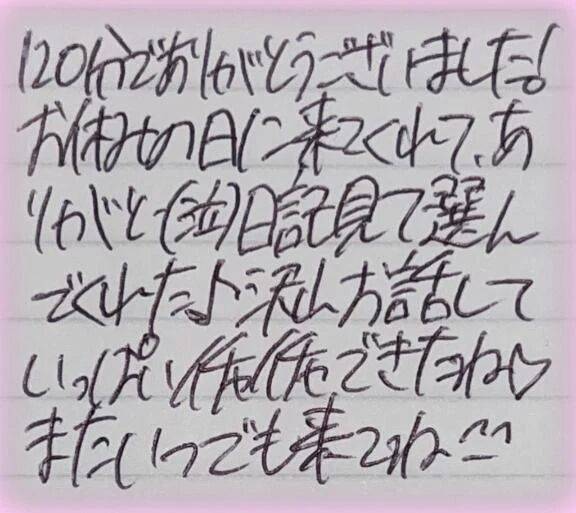 120分でありがとうございました!
お休みの日に来てくれて、あ
りがと(泣)日記見て選ん
でくれた♪沢山お話して
いっぱいイチャイチャできたね♡
またいつでも来てね^^